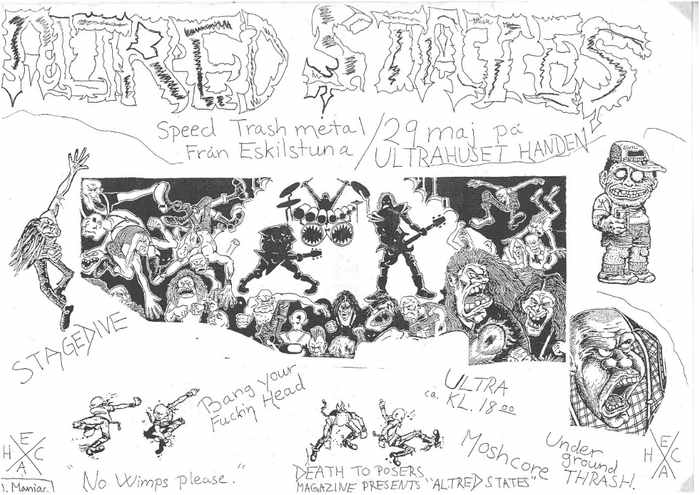 ALTRED STATES
Speed Trash metal / 29 maj på
Från Eskilstuna / ULTRAHUSET HANDEN!
STAGEDIVE
Bang your
Fuckin Head
ULTRA
ca. KL. 18 00
Moshcore
Under
ground
THRASH.
E
H C
A
"No Wimps please."
DEATH TO POSERS
MAGAZINE PRESENTS "ALTRED STATES"
E
H C
A